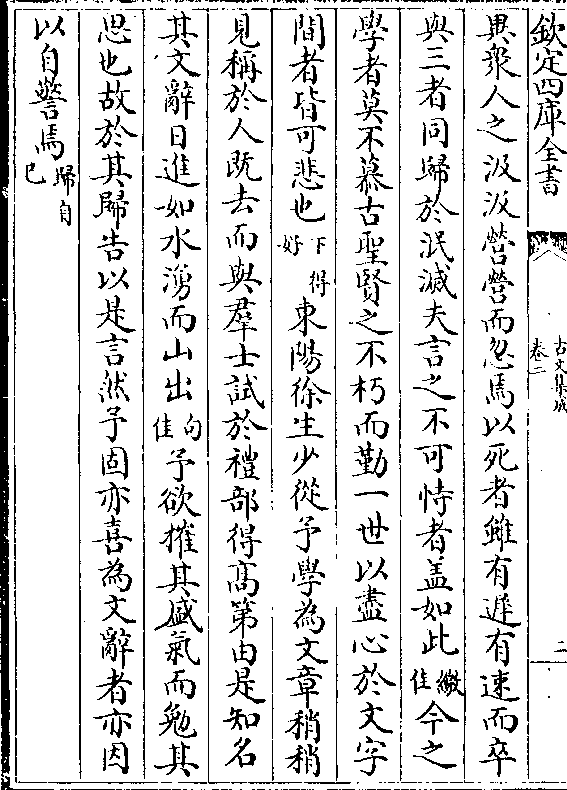 欽定四庫全書
古文集成
卷二
二
異衆人之汲汲營營而忽焉以死者雖有遲有速而卒
與三者同歸於泯滅夫言之不可恃者盖如此繳佳今之
學者莫不慕古聖賢之不朽而勤一世以盡心於文字
間者皆可悲也下得好東陽徐生少從予學為文章稍稍
見稱於人既去而與羣士試於禮部得髙第由是知名
其文辭日進如水湧而山出句佳予欲摧其盛氣而勉其
思也故於其歸告以是言然予固亦喜為文辭者亦因
以自警焉歸自己